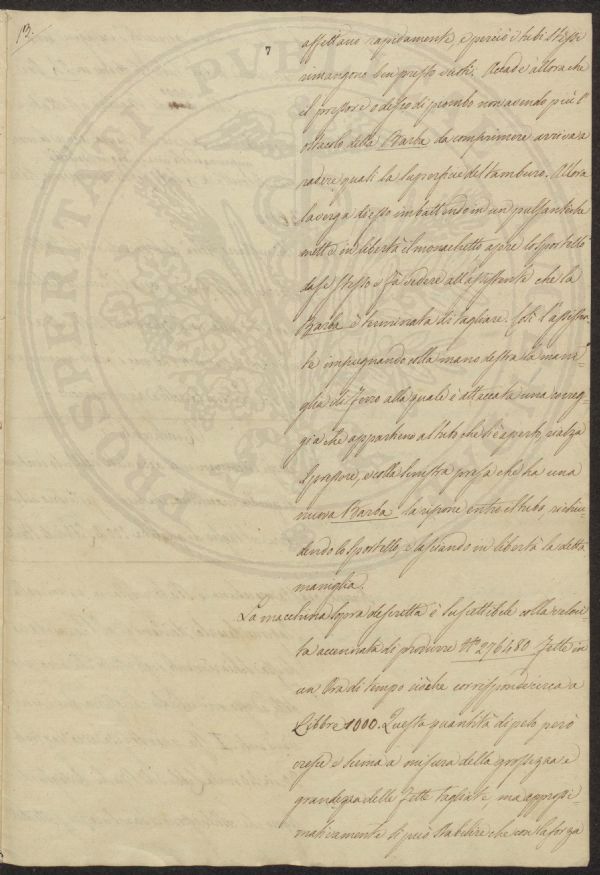 13.
7
affettano rapidamente, e perciò i tubi stessi
rimangono ben presto vuoti. Accade allora che
il pressore o disco di piombo non avendo più l'
ostacolo della Barba da comprimere arriva a
radere quasi la superficie del tamburo. Allora
la verga di esso imbattendo in un pulsante che
mette in libertà il monachetto apre lo sportello
da se stesso e fà vedere all'assistente che la
Barba è terminata di tagliare. Così l'assisten-
te impugnando colla mano destra la mani-
glia di ferro alla quale è attaccata una coreg-
gia che appartiene al tubo che si è aperto, rialza
il pressore, e colla sinistra presa che ha una
nuova Barba la ripone entro il tubo, richiu-
dendo lo sportello, e lasciando in libertà la detta
maniglia.
La macchina sopra descritta è suscettibile colla veloci-
tà accennata di produrre N° 276480 Fette in
un Ora di tempo ciocche corrisponde circa a
Libbre 1000. Questa quantità di pelo però
cresce e scema a misura della grossezza e
grandezza delle Fette tagliate, ma approssi-
mativamente si può stabilire che con la forza
POSTERITATI PVBLI